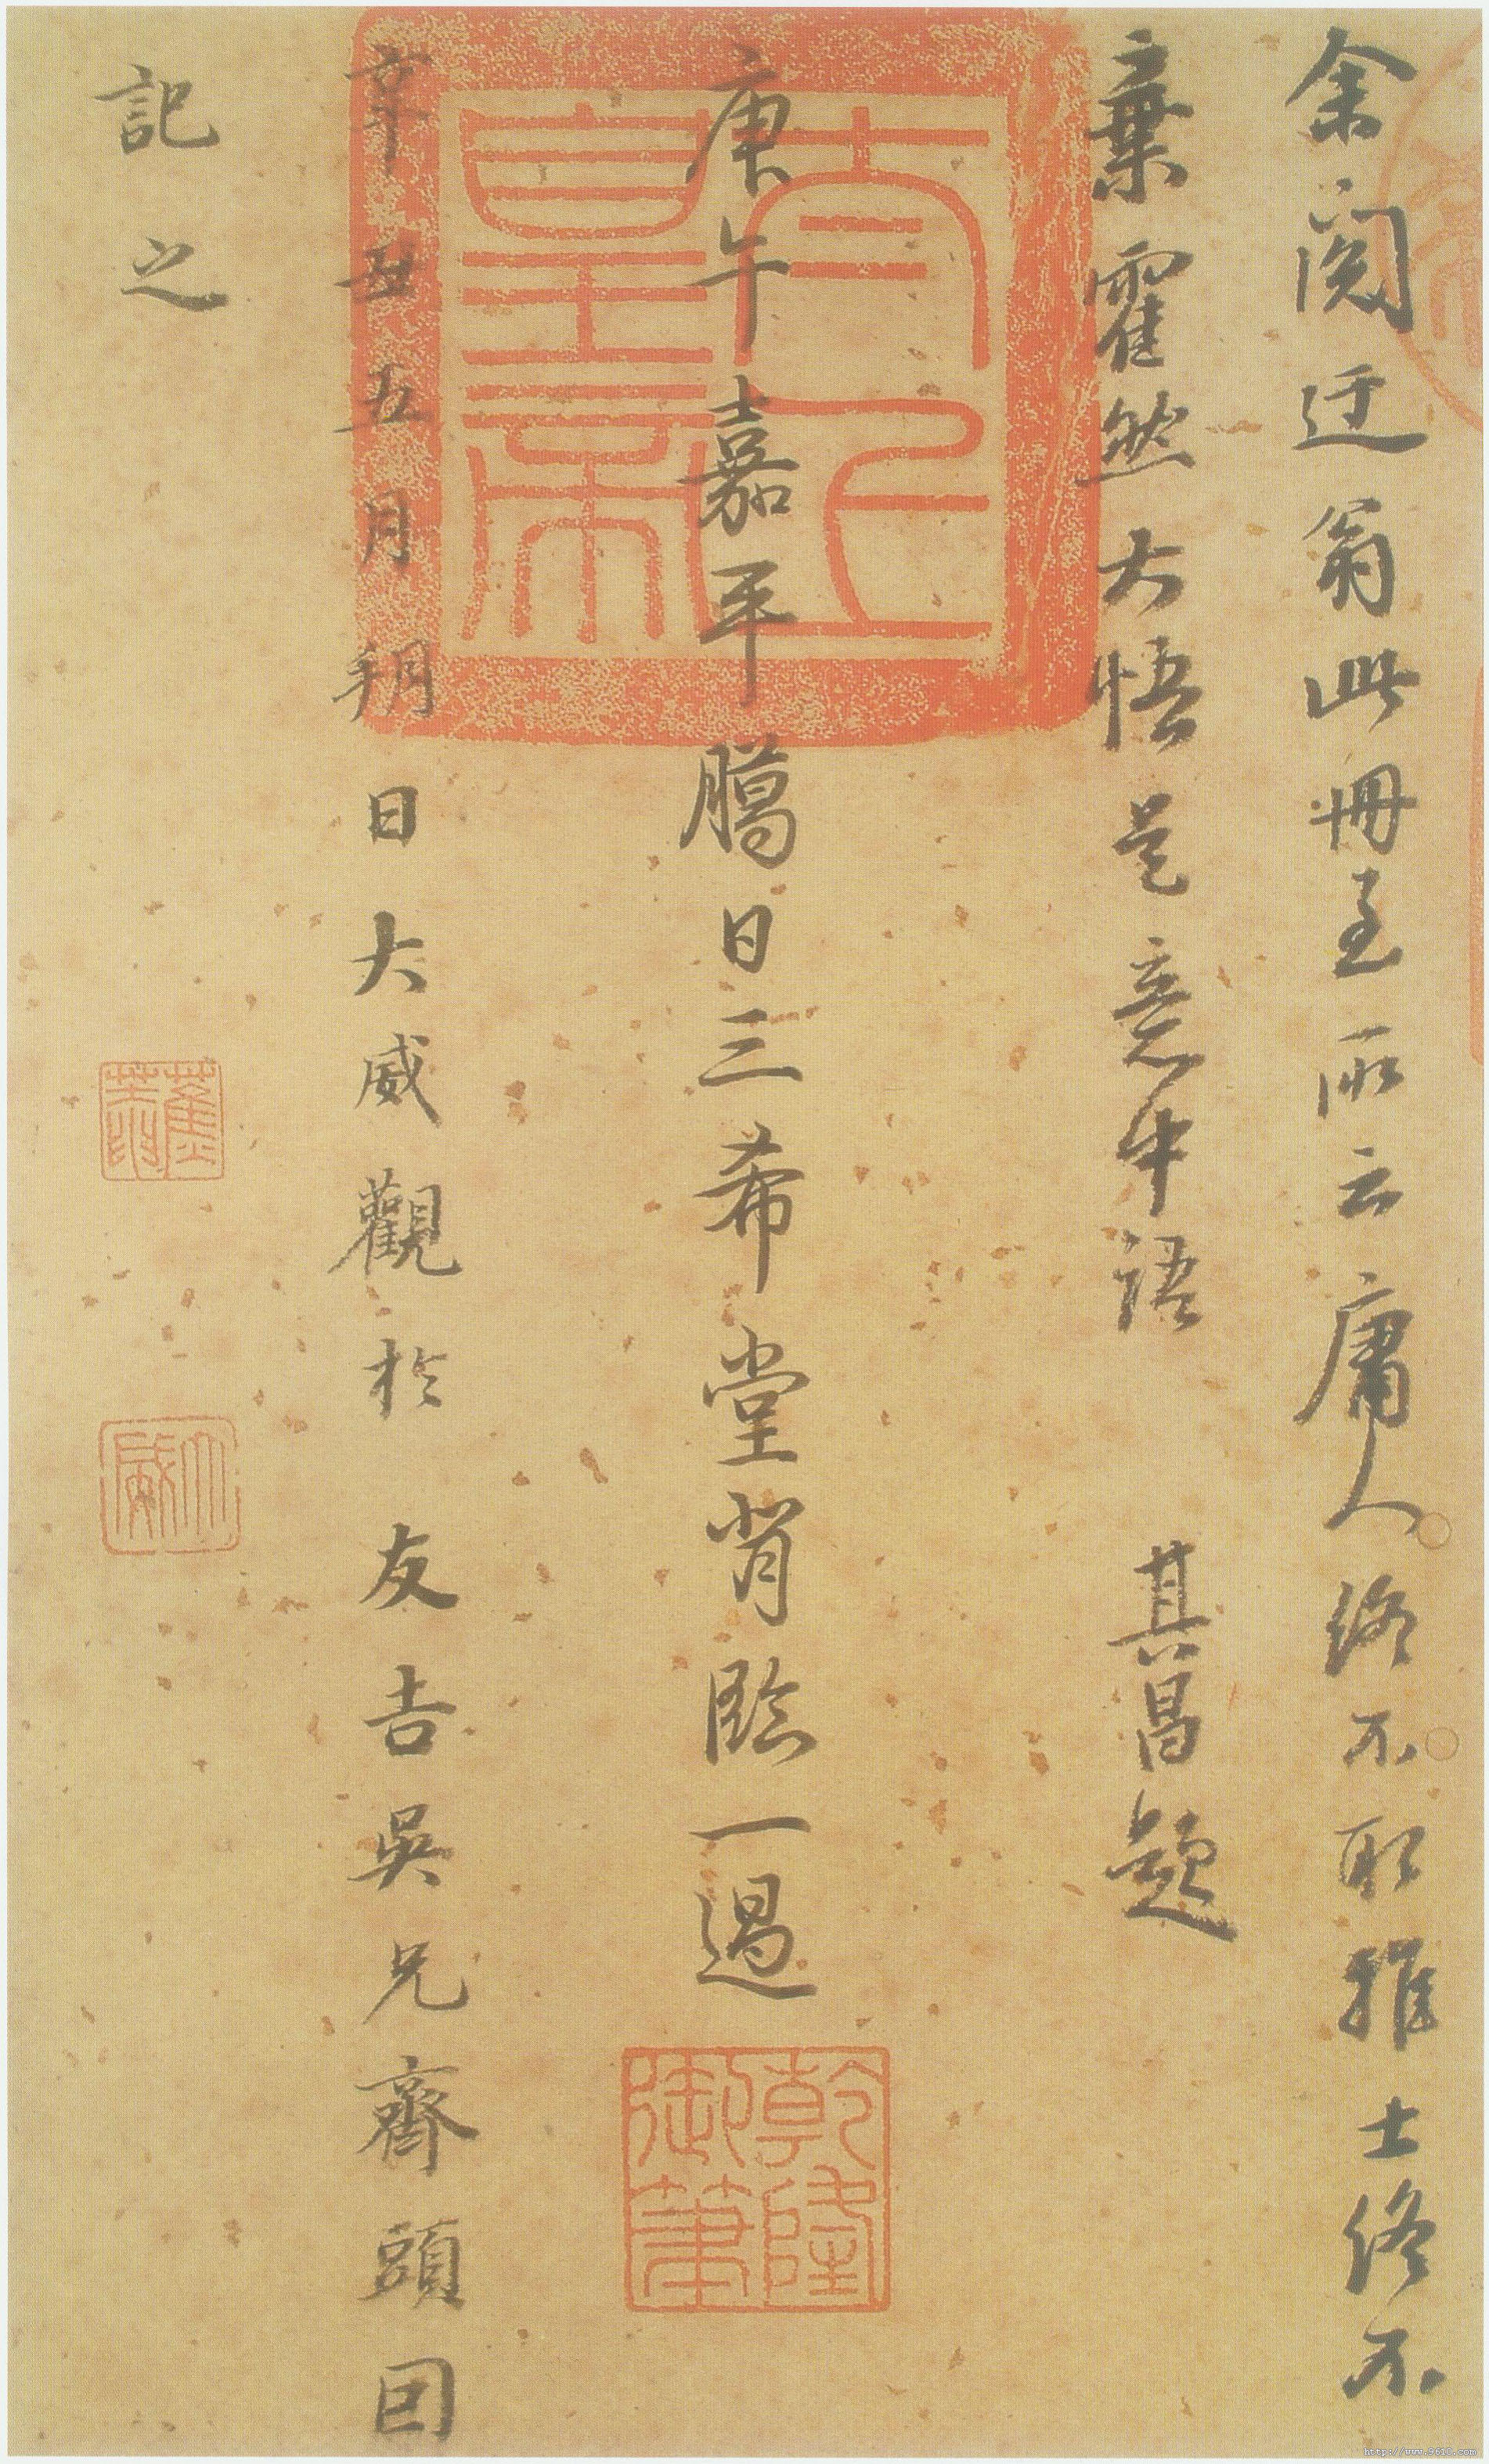 余閱迂翁此冊至所云庸人終不取雅士終不
棄霍然大悟是意中語 其昌題
庚午嘉平臈日三希堂背臨一過
辛丑五月朔日大威觀於 友吉吳兄齊頭囙
記之
太上皇帝
乾隆御筆
大威
http://www.9610.com